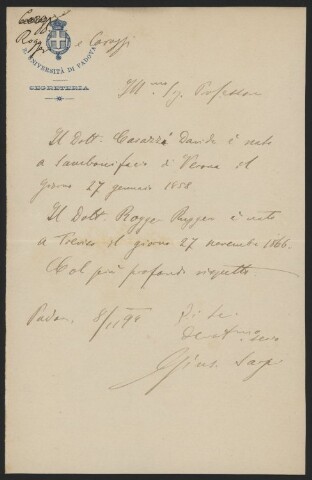 Roggeri e Carazzi
R. UNIVERSITÀ DI PADOVA
SEGRETERIA
Ill.mo Sig. Professore
Il Dott. Carazzi Davide è nato
a Sambonifacio di Verona il
giorno 27 gennaio 1858
Il Dott. Ruggero è nato
a Treviso il giorno 27 novembre 1866.
Col più profondo rispetto.
Padova 8/
Di Lei
Dev.mo